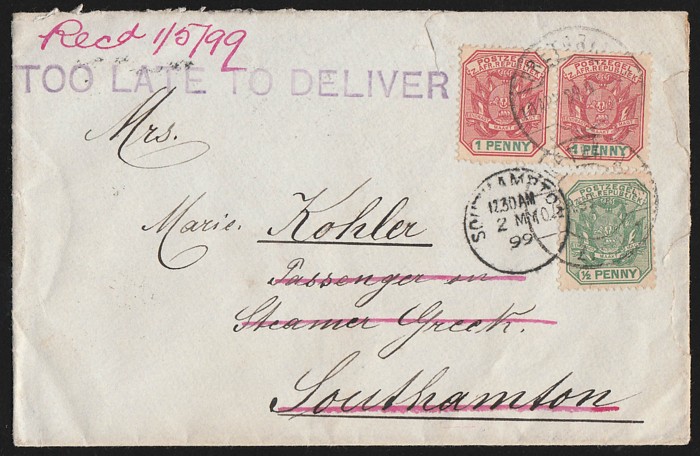 Recd 1/5/99
TOO LATE TO DELIVER
POSTZEGEL
Z.AFR.REPUBLIEK
1 PENNY
POSTZEGEL
Z.AFR.REPUBLIEK
1 PENNY
Mrs.
SOUTHAMPTON
12.30 AM
2 MY
99
POSTZEGEL
Z.AFR.REPUBLIEK
½ PENNY
Marie. Kohler
Passenger on
Steamer Greek.
Southamton